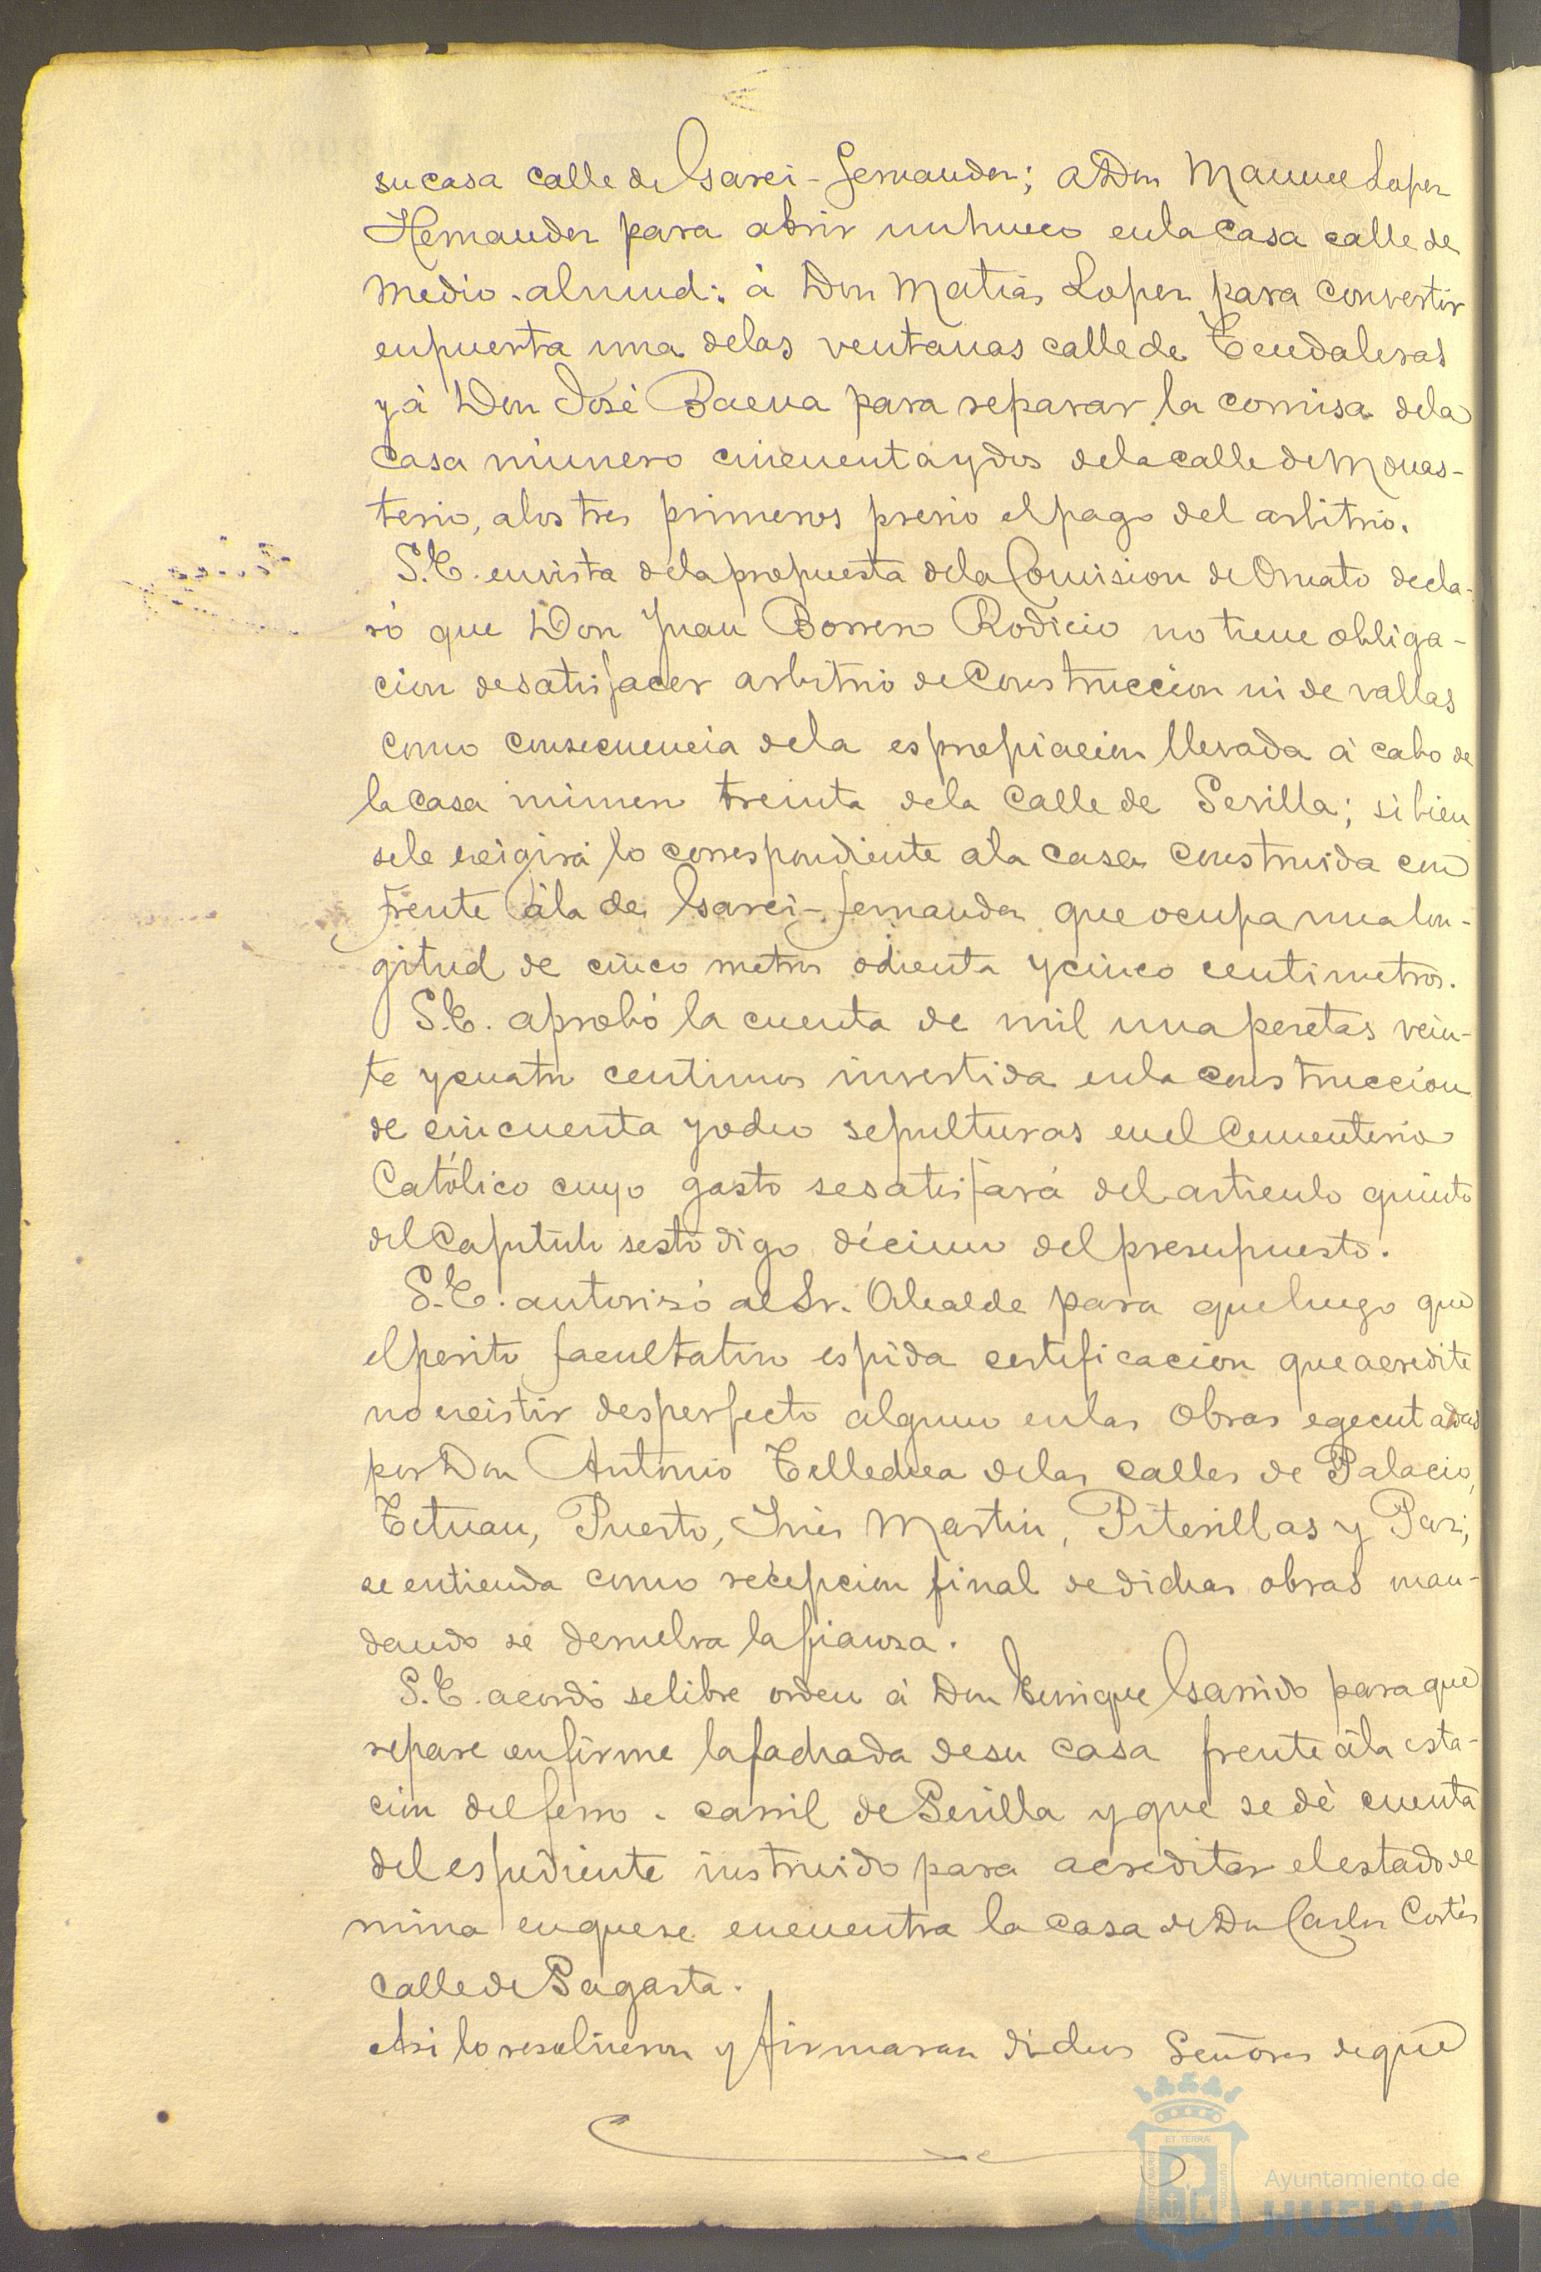 su casa calle de Garci-Fernandez; a Don Manuel Lopez
Hernandez para abrir un hueco en la casa calle de
medio-almud; à Don Matias Lopez para convertir
en puerta una de las ventanas calle de Tendaleras
y à Don José Baena para reparar la cornisa de la
casa número cincuenta y dos de la calle de Monas-
terio, a los tres primeros previo el pago del arbitrio.
S.E. en vista de la propuesta de la Comision de Ornato decla-
ró que Don Juan Borrero Rodicio no tiene obliga-
cion de satisfacer arbitrio de construccion ni de vallas
como consecuencia de la espropiacion llevada à cabo de
la casa número treinta de la calle de Sevilla; si bien
se le exigirá lo correspondiente a la casa construida con
frente à la de Garci-Fernandez que ocupa una lon-
gitud de cinco metros ochenta y cinco centimetros.
S.E. aprobó la cuenta de mil una pesetas vein-
te y cuatro centimos invertida en la construccion
de cincuenta y ocho sepulturas en el Cementerio
Católico cuyo gasto se satisfará del articulo quinto
del Capitulo sesto digo décimo del presupuesto.
S.E. autorizó al Sr. Alcalde para que luego que
el perito facultativo espida certificacion que acredite
no existir desperfecto alguno en las obras egecutadas
por Don Antonio Tellechea de las calles de Palacio,
Tetuan, Puerto, Inés Martin, Piterillas y Paz,
se entienda como recepcion final de dichas obras man-
dando se devuelva la fianza.
S.E. acordó se libre orden á Don Enrique Garrido para que
repare en firme la fachada de su casa frente à la esta-
cion del ferro-carril de Sevilla y que se dé cuenta
del espediente instruido para acreditar el estado de
ruina en que se encuentra la casa de Dn Carlos Cortés
calle de Sagasta.
Asi lo resolvieron y firmaran dichos Señores de que
Ayuntamiento de
HUELVA